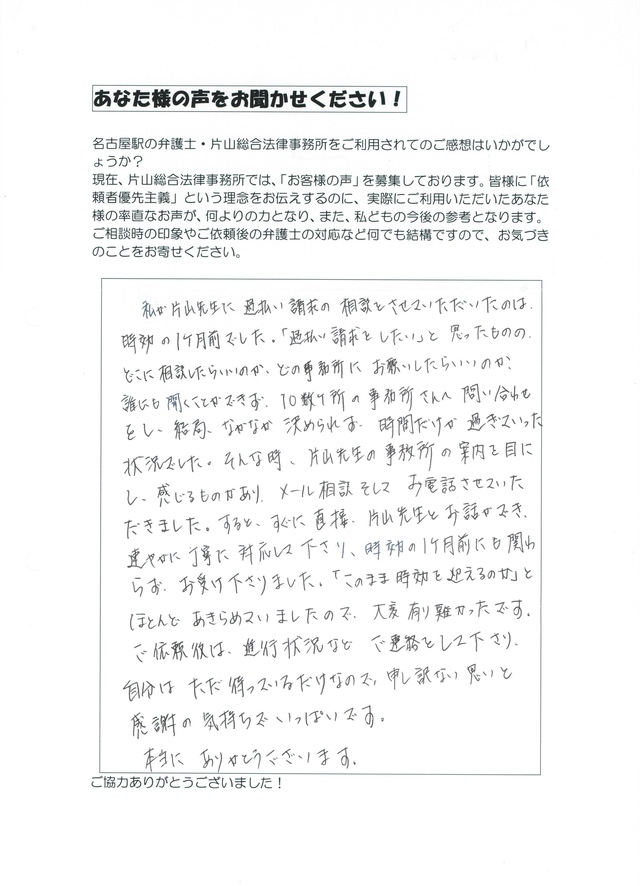 あなた様の声をお聞かせください！
名古屋駅の弁護士・片山総合法律事務所をご利用されてのご感想はいかがでし
ょうか？
現在、片山総合法律事務所では、「お客様の声」を募集しております。皆様に「依
頼者優先主義」という理念をお伝えするのに、実際にご利用いただいたあなた
様の率直なお声が、何よりの力となり、また、私どもの今後の参考となります。
ご相談時の印象やご依頼後の弁護士の対応など何でも結構ですので、お気づき
のことをお寄せください。
私が片山先生に過払い請求の相談をさせていただいたのは、
時効の1ヶ月前でした。「過払い請求をしたい」と思ったものの、
どこに相談したらいいのか、どの事務所にお願いしたらいいのか？
誰にも聞くことができず、10数ヶ所の事務所さんへ問い合わせ
をし、結局、なかなか決められず、時間だけが過ぎていった
状況でした。そんな時、片山先生の事務所の案内を目に
し、感じるものがあり、メール相談そしてお電話させていた
だきました。すると、すぐに直接、片山先生とお話ができ、
速やかに丁寧に対応して下さり、時効の1ヶ月前にも関わ
らず、お受け下さりました。「このまま時効を迎えるのか」と
ほとんどあきらめていましたので、大変有り難かったです。
ご依頼後は、進行状況などご連絡をして下さり、
自分はただ待っているだけなので、申し訳ない思いと
感謝の気持ちでいっぱいです。
本当にありがとうございます。
ご協力ありがとうございました！